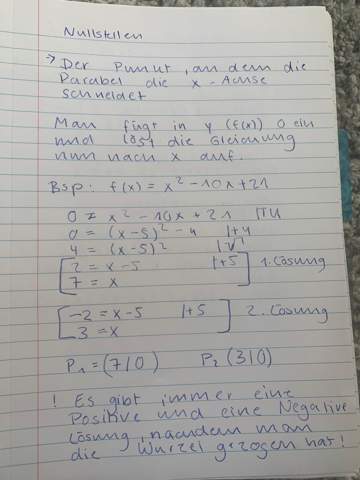 Nullstellen
→ Der Punkt, an dem die
Parabel die x-Achse
schneidet
Man fügt in y (f(x)) 0 ein
und löst die Gleichung
nun nach x auf.
Bsp: f(x) = x² - 10x + 21
0 = x² - 10x + 21 |TU
0 = (x-5)² - 4 |+4
4 = (x-5)² |√
2 = x-5 |+5 1. Lösung
7 = x
-2 = x-5 |+5 2. Lösung
3 = x
P₁ = (7|0) P₂ (3|0)
! Es gibt immer eine
Positive und eine Negative
Lösung, nachdem man
die Wurzel gezogen hat!